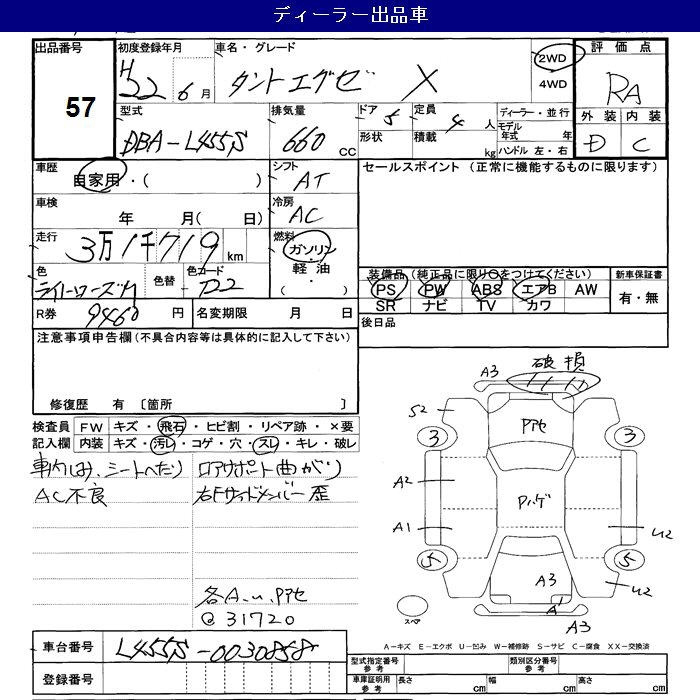 ディーラー出品車
出品番号 57
初度登録年月 H22年 6月
車名・グレード タントエグゼ X
2WD
4WD
評価点 RA
外装 内装
D C
型式 DBA-L455S
排気量 660 CC
ドア 5
形状
定員 4人
積載 kg
ディーラー・並行
モデル年式 年
ハンドル 左・右
車歴 自家用・( )
シフト AT
セールスポイント (正常に機能するものに限ります)
車検 年 月( 日)
冷房 AC
走行 3万1千719km
燃料 ガソリン・軽油・( )
色 ライトローズM
色替
色コード
装備品(純正品に限り○をつけてください)
新車保証書
PS PW ABS エアB AW
有・無
SR ナビ TV カワ
R券 9460円
名変期限 月 日
後日品
注意事項申告欄(不具合内容等は具体的に記入して下さい)
修復歴 有 〔箇所 〕
検査員記入欄
FW キズ・飛石・ヒビ割・リペア跡・×要
内装 キズ・汚レ・コゲ・穴・スレ・キレ・破レ
車内しみ、シートへたり
ロアサポート曲がり
AC不良
右Fサイドメンバー歪
各A.u.Pアセ
@31720
車台番号 L455S-0030858
登録番号
A3 破損
S2
Pアセ
3 3
A2
Pハゲ
A1
U2
5 5
A3
U2
A1
A3
スペア
A-キズ E-エクボ U-凹み W-補修跡 S-サビ C-腐食 XX-交換済
型式指定番号 参考
類別区分番号 参考
車庫証明用 参考
長さ cm
幅 cm
高さ cm